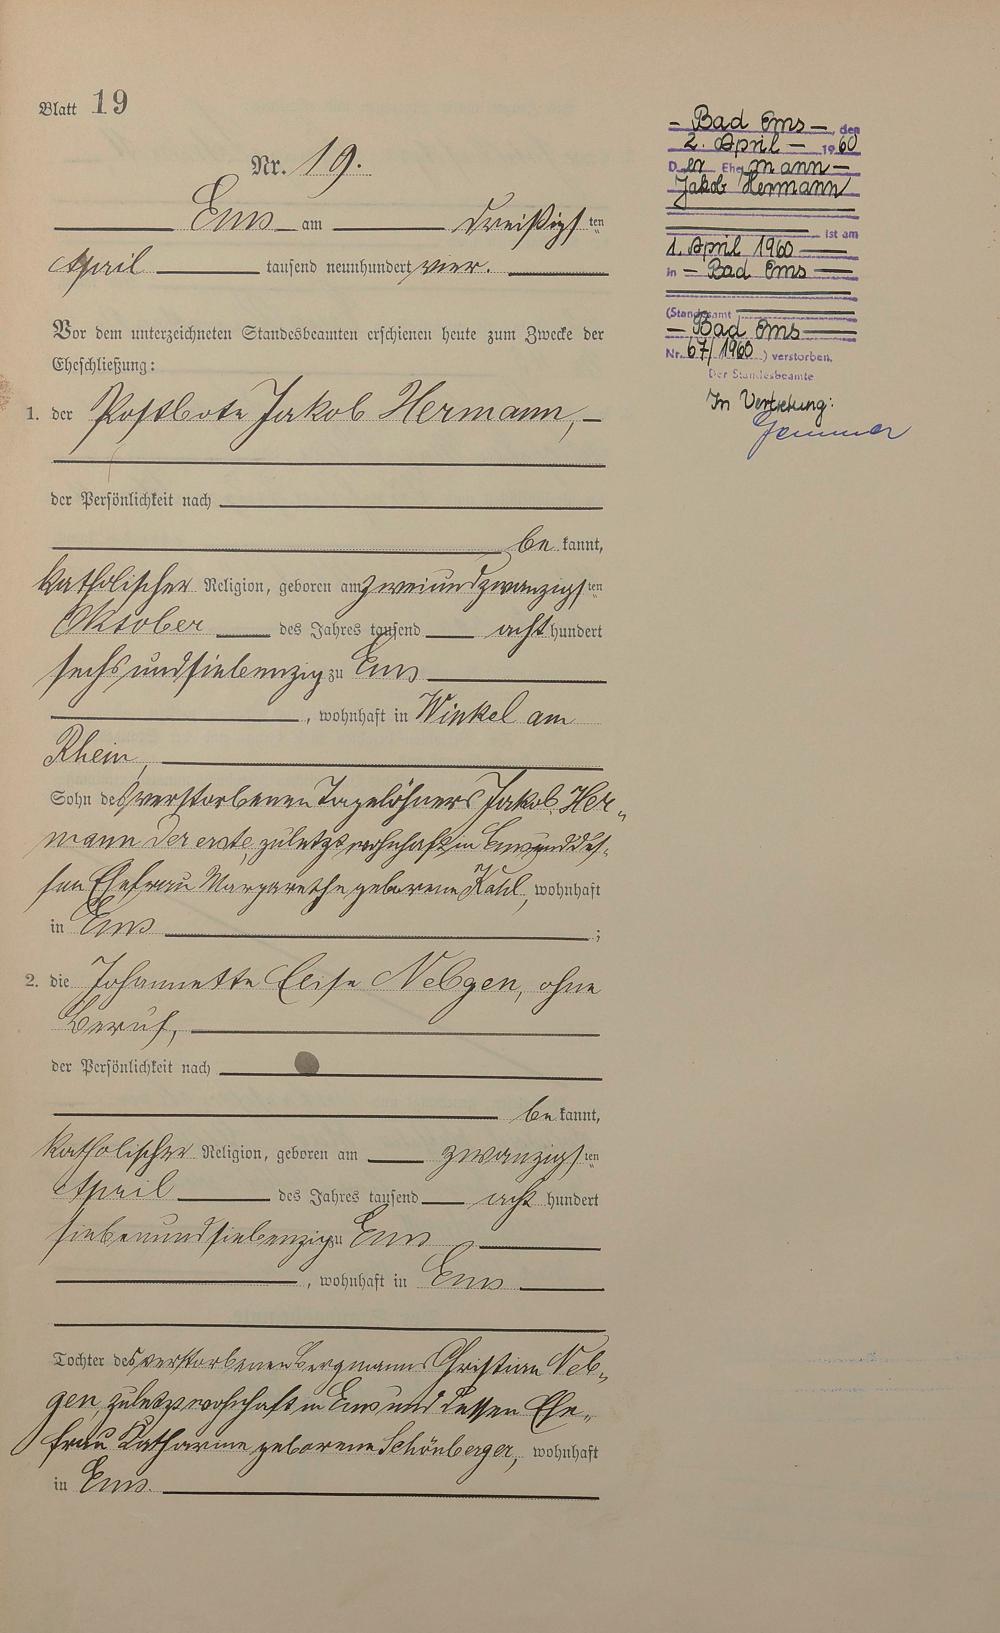 Blatt 19
Nr. 19.
Ems am dreißigsten
April tausend neunhundert vier.
Vor dem unterzeichneten Standesbeamten erschienen heute zum Zwecke der
Eheschließung:
1. der Postbote Jakob Hermann,
der Persönlichkeit nach
bekannt,
katholischer Religion, geboren am zweiundzwanzigsten
Oktober des Jahres tausend acht hundert
sechsundsiebenzig zu Ems
, wohnhaft in Winkel am
Rhein,
Sohn des verstorbenen Tagelöhners Jakob Her-
mann der erste, zuletzt wohnhaft in Ems und des-
sen Ehefrau Margarethe geborene Kaul, wohnhaft
in Ems ;
2. die Johannette Elise Nebgen, ohne
Beruf,
der Persönlichkeit nach
bekannt,
katholischer Religion, geboren am zwanzigsten
April des Jahres tausend acht hundert
siebenundsiebenzig zu Ems
, wohnhaft in Ems
Tochter des verstorbenen Bergmanns Christian Neb-
gen, zuletzt wohnhaft in Ems und dessen Ehe-
frau Katharine geborene Schönberger, wohnhaft
in Ems.
- Bad Ems -, den
2. April - 1960
Der Ehemann -
Jakob Hermann
ist am
1. April 1960
in - Bad Ems
(Standesamt
- Bad Ems
Nr. 67/1960) verstorben.
Der Standesbeamte
In Vertretung: